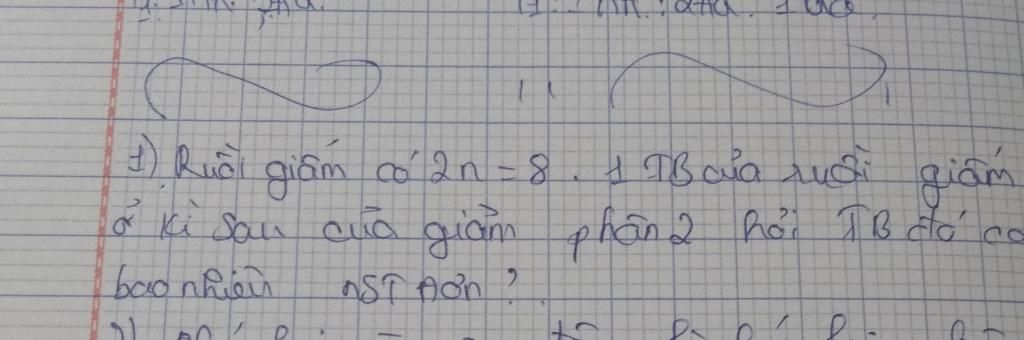 1) Ruồi giấm có 2n = 8. 1 TB của ruồi giấm
ở kì sau của giảm phân 2 hỏi TB đó có
bao nhiêu nST đơn?